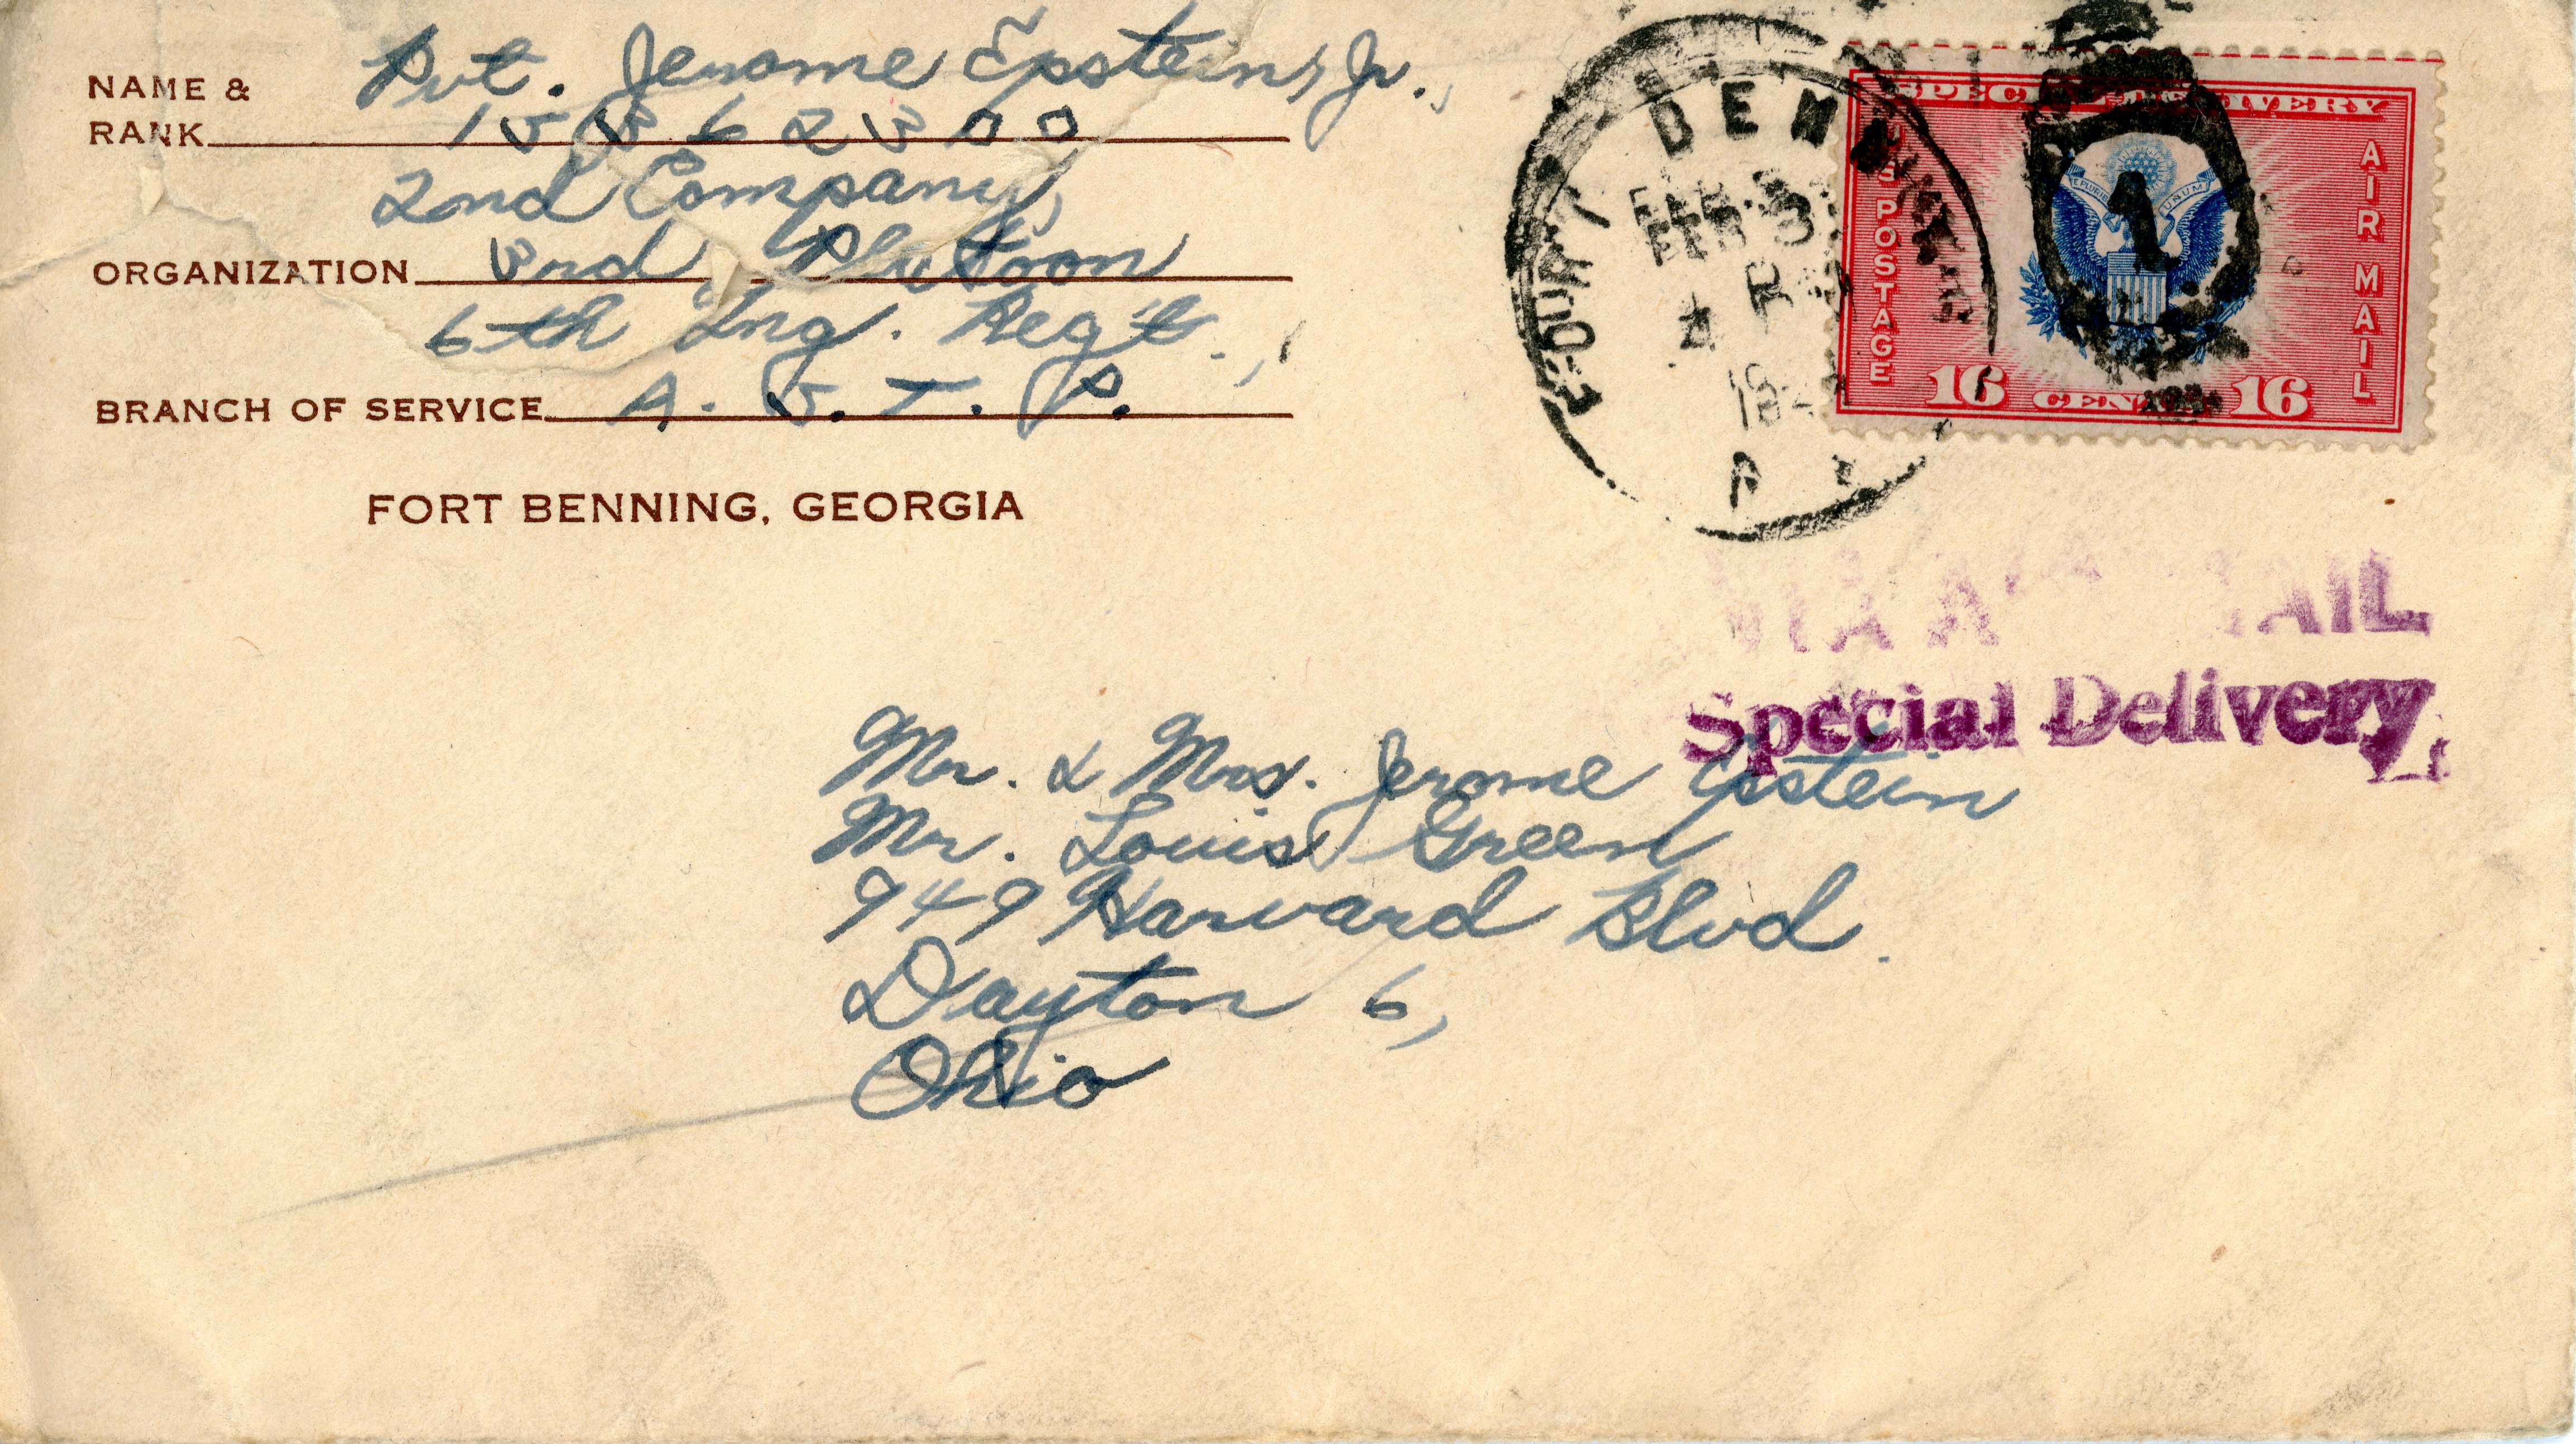 NAME & RANK Pvt. Jerome Epstein, Jr.,
2nd Company,
ORGANIZATION 3rd Platoon
6th Ing. Reg't.,
BRANCH OF SERVICE A. S. T. P.
FORT BENNING, GEORGIA
SPECIAL DELIVERY
U S POSTAGE
AIR MAIL
E PLURIBUS UNUM
1
16 CENTS 16
FEB 3
VIA AIR MAIL
Special Delivery
Mr. & Mrs. Jerome Epstein
Mr. Louis Green
949 Harvard Blvd.
Dayton 6,
Ohio